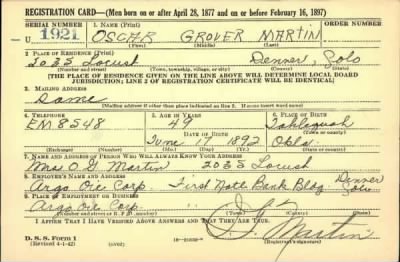 REGISTRATION CARD—(Men born on or after April 28, 1877 and on or before February 16, 1897)
SERIAL NUMBER
1. NAME (Print)
U 1921
OSCAR GROVER MARTIN
(First) (Middle) (Last)
2. PLACE OF RESIDENCE (Print)
2035 Locust Denver, Colo
(Number and street) (Town, township, village, or city) (County) (State)
[THE PLACE OF RESIDENCE GIVEN ON THE LINE ABOVE WILL DETERMINE LOCAL BOARD
JURISDICTION; LINE 2 OF REGISTRATION CERTIFICATE WILL BE IDENTICAL]
3. MAILING ADDRESS
Same
[Mailing address if other than place indicated on line 2. If same insert word same]
4. TELEPHONE
5. AGE IN YEARS
6. PLACE OF BIRTH
EM 8548
49
Tahlequah
DATE OF BIRTH
(Town or county)
June 17 1892
Okla.
(Exchange) (Number)
(Mo.) (Day) (Yr.)
(State or country)
7. NAME AND ADDRESS OF PERSON WHO WILL ALWAYS KNOW YOUR ADDRESS
Mrs O. G. Martin 2035 Locust
8. EMPLOYER'S NAME AND ADDRESS
Denver
Argo Oil Corp. First Natl Bank Bldg Colo
9. PLACE OF EMPLOYMENT OR BUSINESS
Argo Oil Corp.
(Number and street or R. F. D. number) (Town) (County) (State)
I AFFIRM THAT I HAVE VERIFIED ABOVE ANSWERS AND THAT THEY ARE TRUE.
D. S. S. Form 1
(Revised 4-1-42) (over)
O. G. Martin
(Registrant's signature)